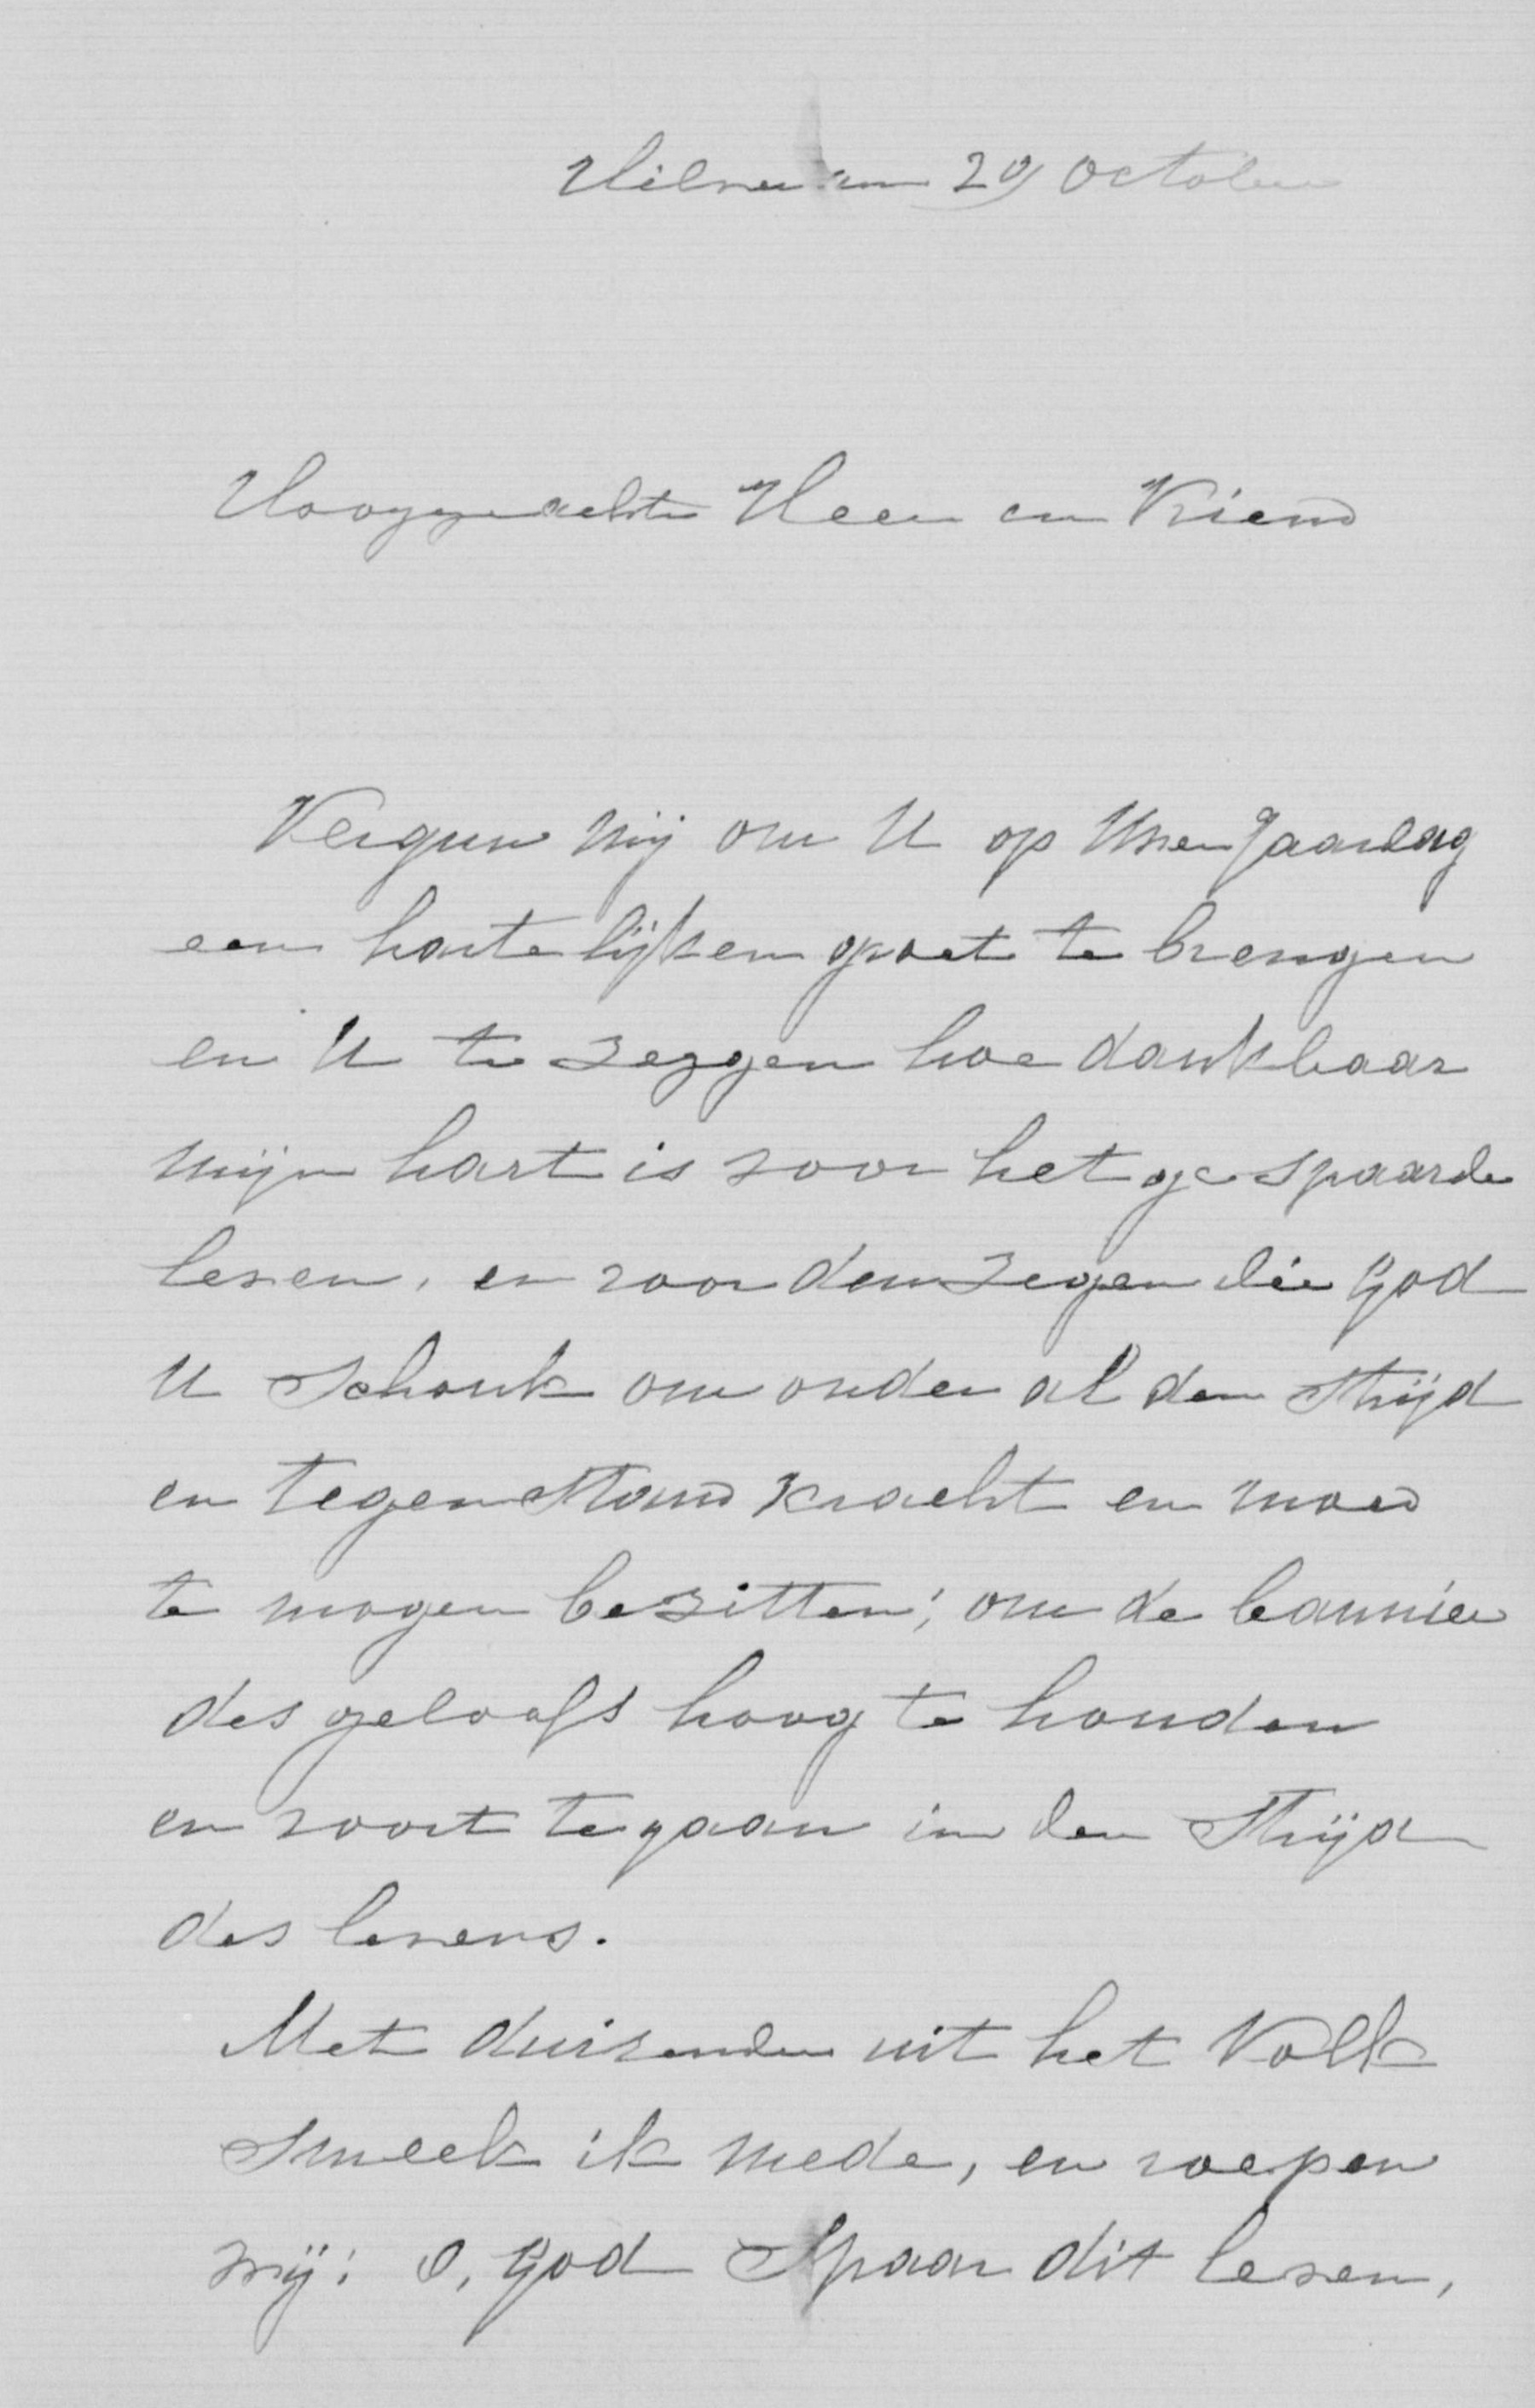 Hilversum 29 October
Hooggeachte Heer en Vriend
Vergun mij om U op Uwen Jaardag
een hartelijken groet te brengen
en U te zeggen hoe dankbaar
mijn hart is voor het gespaarde
leven, en voor den zegen die God
U schonk om onder al den strijd
en tegenstand kracht en moed
te mogen bezitten; om de bannier
des geloofs hoog te houden
en voort te gaan in den strijd
des levens.
Met duizenden uit het Volk
smeek ik mede, en roepen
wij: O, God Spaar dit leven,